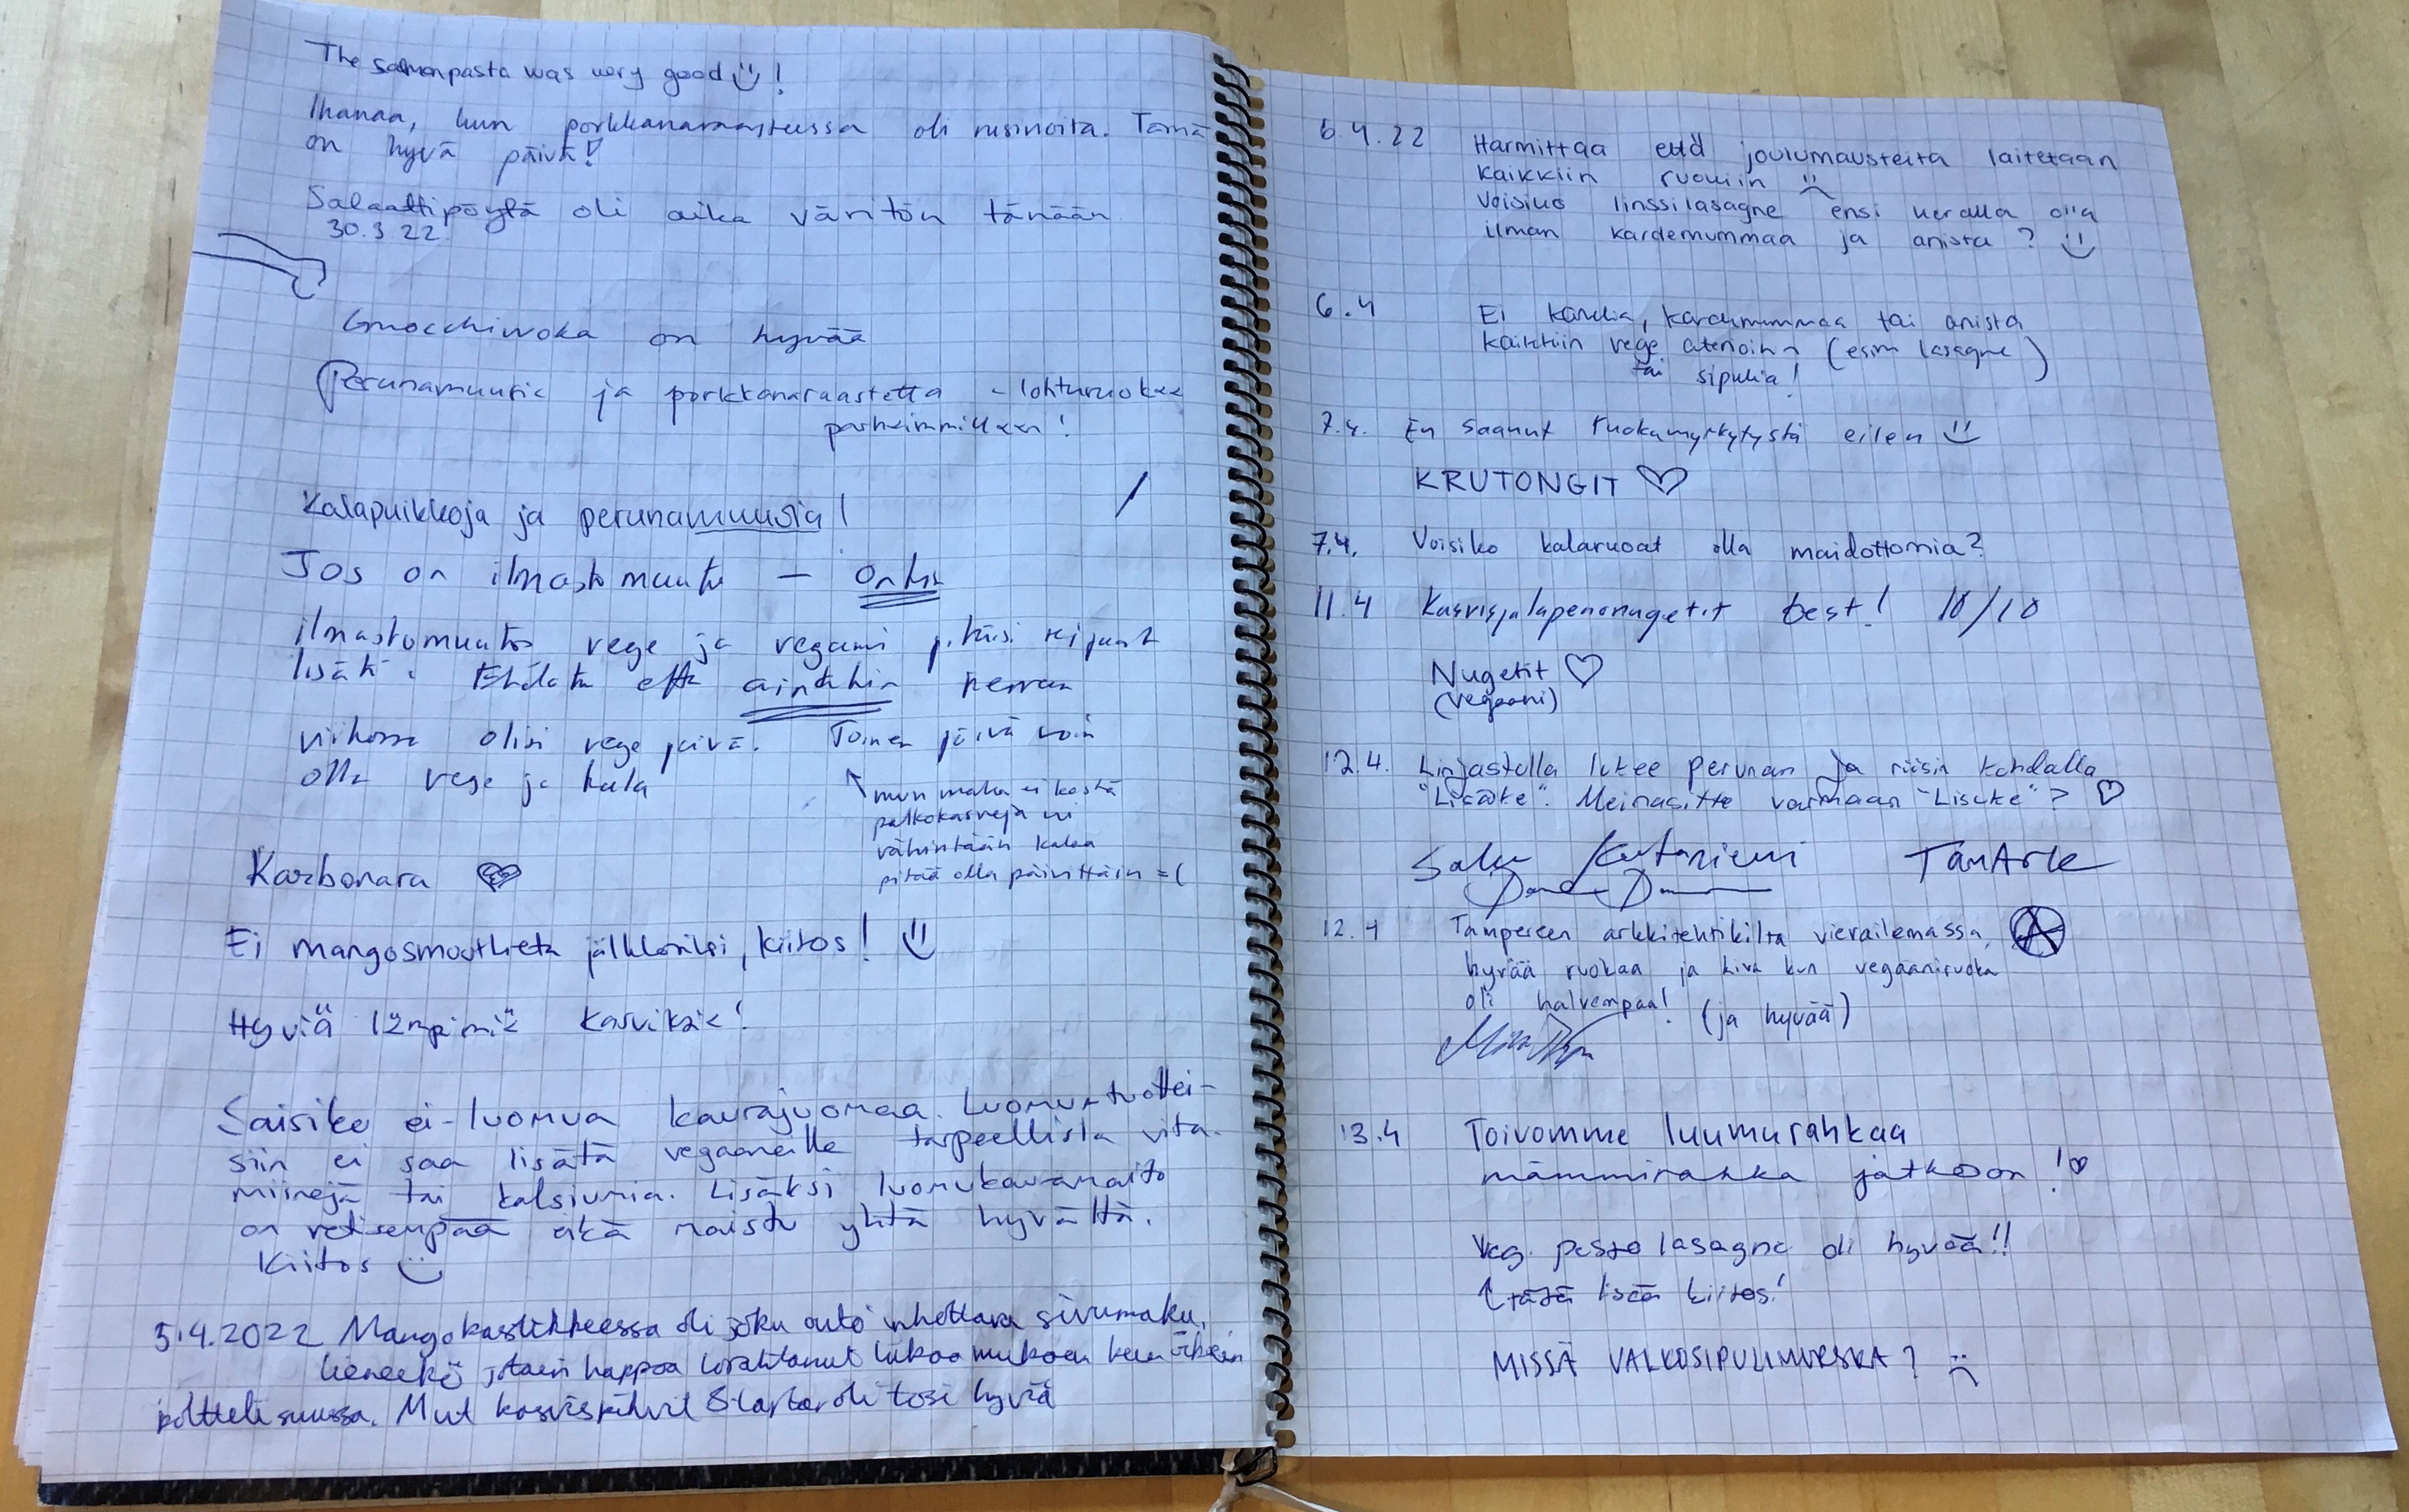 The salmonpasta was very good !
Ihanaa, kun porkkanaraasteessa oli rusinoita. Tämä
on hyvä päivä!
Salaattipöytä oli aika väritön tänään
30.3.22.
Gnocchiwoka on hyvää
Perunamuusia ja porkkanaraastetta - lohturuokaa
parhaimmillaan!
Kalapuikkoja ja perunamuusia!
Jos on ilmastomuutos — Onko
ilmastomuutos vege ja vegaani pitäisi
lisätä. Ehdotan että ainakin kerran
viikossa olisi vege päivä. Toinen päivä voin
olla vege ja kala
mun maha ei kestä
palkokasveja ni
vähintään kalaa
pitää olla päivittäin =(
Karbonara
Ei mangosmoothieta jälkkäriksi, kiitos!
Hyviä lämpimiä kasviksia!
Saisiko ei-luomua kaurajuomaa. Luomutuottei-
siin ei saa lisätä vegaaneille tarpeellista vita-
miinejä tai kalsiumia. Lisäksi luomukauramaito
on vetisempää eikä maistu yhtä hyvältä.
Kiitos
5.4.2022 Mangokastikkeessa oli joku outo inhottava sivumaku,
lieneekö jotain happoa lorahtanut liikaa mukaan kun oikein
poltteli suussa. Mut kasvispihvit & tartar oli tosi hyviä
6.4.22 Harmittaa että joulumausteita laitetaan
kaikkiin ruokiin
Voisiko linssilasagne ensi kerralla olla
ilman kardemummaa ja anista?
6.4 Ei kanelia, kardemummaa tai anista
kaikkiin vege aterioihin (esim lasagne)
tai sipulia!
7.4. En saanut ruokamyrkytystä eilen
KRUTONGIT
7.4. Voisiko kalaruoat olla maidottomia?
11.4 Kasvisjalapenonugetit best! 10/10
Nugetit
(vegaani)
12.4. Linjastolla lukee perunan ja riisin kohdalla
"Lisäke". Meinasitte varmaan "Liscke"?
TamArk
12.4 Tampereen arkkitehtikilta vierailemassa,
hyvää ruokaa ja kiva kun vegaaniruoka
oli halvempaa! (ja hyvää)
13.4 Toivomme luumurahkaa
mämmirahka jatkoon!
Veg. pestolasagne oli hyvää!!
tätä lisää kiitos!
MISSÄ VALKOSIPULIMURSKA?